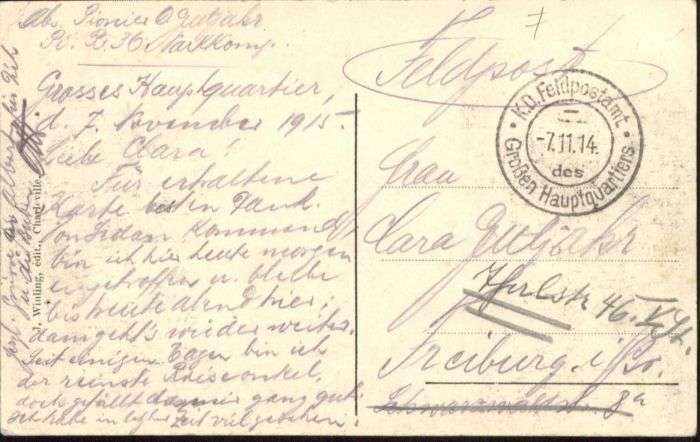 Abs. Pionier O. Gutjahr
Pi. B. 36. Nachkomp.
Feldpost
K.D. Feldpostamt
-7.11.14.
des
Großen Hauptquartiers
Grosses Hauptquartier,
d. 7. November 1915.
Liebe Clara!
Für erhaltene
Karte besten Dank.
Von Sedan kommend
bin ich hier heute morgen
eingetroffen u. bleibe
bis heute Abend hier,
dann geht's wieder weiter.
Seit einigen Tagen bin ich
der reinste Reiseonkel,
doch gefällt das mir ganz gut.
Ich habe in letzter Zeit viel gesehen.
Frau
Clara Gutjahr
46
Freiburg i/Br.
8a
J. Winling, édit., Charleville